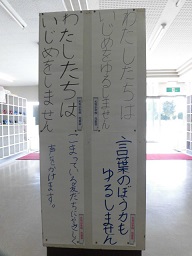 わたしたちは
いじめをゆるしません
言葉のぼう力も
ゆるしません
わたしたちは
いじめをしません
こまっている友だちに
声をかけます。